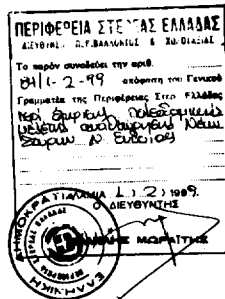 ΠΕΡΙΦΕΡΕΙΑ ΣΤΕΡΕΑΣ ΕΛΛΑΔΑΣ
ΔΙΕΥΘΥΝΣ. Π.Ε.
Το παρόν συνοδεύει την αριθ.
84/1-2-99 απόφαση του Γενικού
Γραμματέα της Περιφέρειας Στερ. Ελλάδας
περί έγκρισης πολεοδομικής
μελέτης αναθεώρησης Νέων
Στύρων Ν. Ευβοίας
ΛΑΜΙΑ 1/2/1999
Ο ΔΙΕΥΘΥΝΤΗΣ
ΜΩΡΑΪΤΗΣ
ΕΛΛΗΝΙΚΗ ΔΗΜΟΚΡΑΤΙΑ